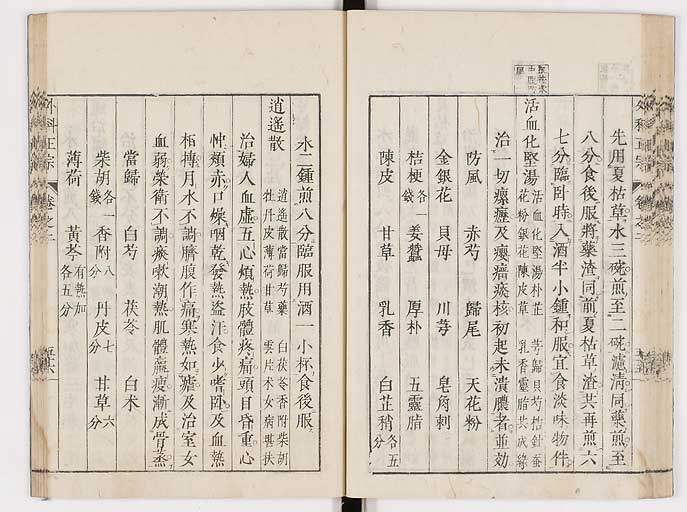 先用夏枯草水三碗煎至二碗濾清同藥煎至
八分食後服將藥渣同前夏枯草渣共再煎六
七分臨卧時入酒半小鍾和服宜食淡味物件
活血化堅湯
活血化堅湯朴芷 芎歸貝芍桔針蚕
花粉銀花陳皮草 乳香靈脂共成
治一切瘰癧及癭瘤痰核初起未潰膿者並効
防風 赤芍 歸尾 天花粉
金銀花 貝母 川芎 皂角刺
桔梗各一錢 姜蠶 厚朴 五靈脂
陳皮 甘草 乳香 白芷稍各五分
水二鍾煎八分臨服用酒一小杯食後服
逍遙散
逍遙散當歸芍藥 白茯苓香附柴胡
牡丹皮薄荷甘草 雲片术女病堪扶
治婦人血虛五心煩熱肢體疼痛頭目昏重心
忡頰赤口燥咽乾發熱盜汗食少嗜卧及血熱
相搏月水不調臍腹作痛寒熱如瘧及治室女
血弱榮衛不調痰嗽潮熱肌體羸瘦漸成骨蒸
當歸 白芍 茯苓 白术
柴胡各一錢 香附八分 丹皮七分 甘草六分
薄荷 黃芩有熱加各五分
外科正宗 卷之二